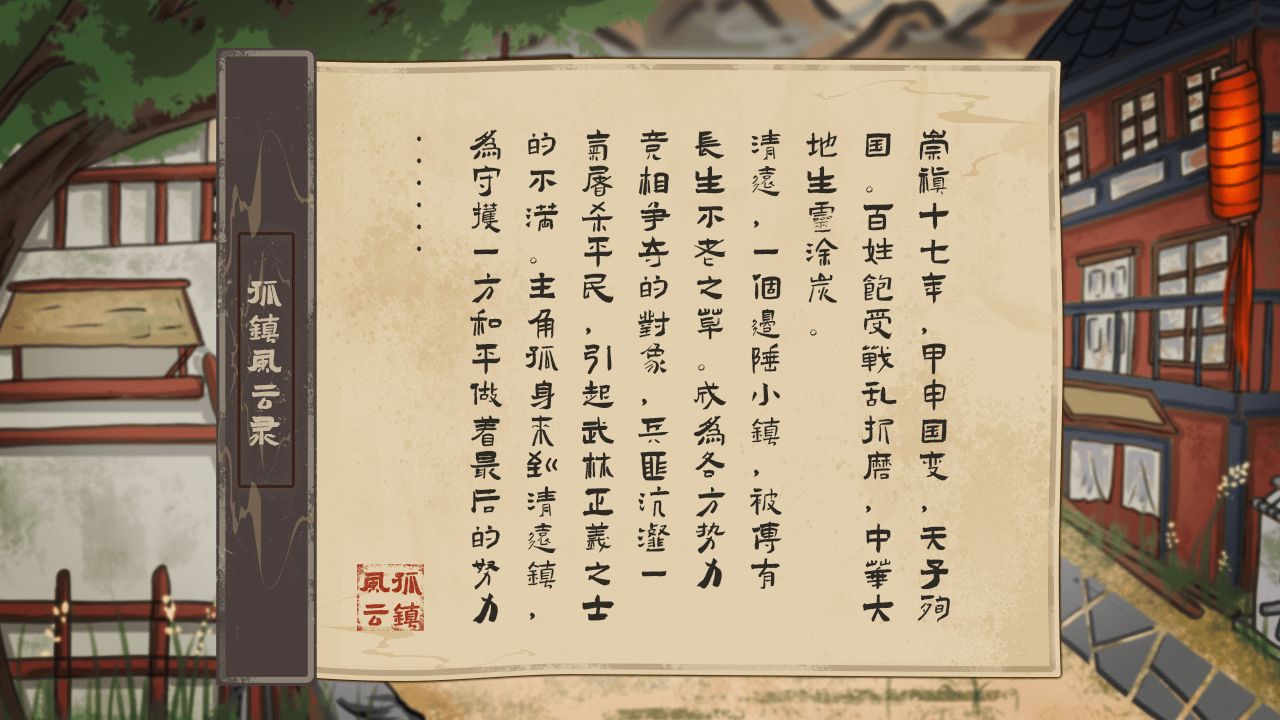 崇禎十七年，甲申国变，天子殉
国。百姓飽受戰乱折磨，中華大
地生靈涂炭。
清遠，一個邊陲小鎮，被傳有
長生不老之草。成為各方势力
竞相争夺的對象，兵匪沆瀣一
氣屠杀平民，引起武林正義之士
的不満。主角孤身来到清遠鎮，
為守擭一方和平做着最后的努力
......
孤鎮風云录
孤鎮
風云